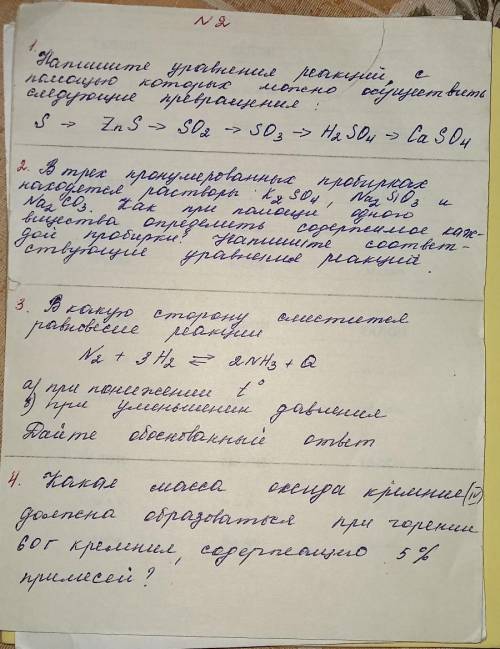 N 2
1. Напишите уравнения реакций, с
помощью которых можно осуществить
следующие превращения:
S → ZnS → SO2 → SO3 → H2SO4 → CaSO4
2. В трех пронумерованных пробирках
находятся растворы K2SO4, Na2SiO3 и
Na2CO3. Как при помощи одного
вещества определить содержимое каж-
дой пробирки? Напишите соответ-
ствующие уравнения реакций.
3. В какую сторону сместится
равновесие реакции
N2 + 3H2 ⇌ 2NH3 + Q
а) при понижении t°
в) при уменьшении давления
Дайте обоснованный ответ
4. Какая масса оксида кремния (IV)
должна образоваться при горении
60 г кремния, содержащего 5%
примесей?